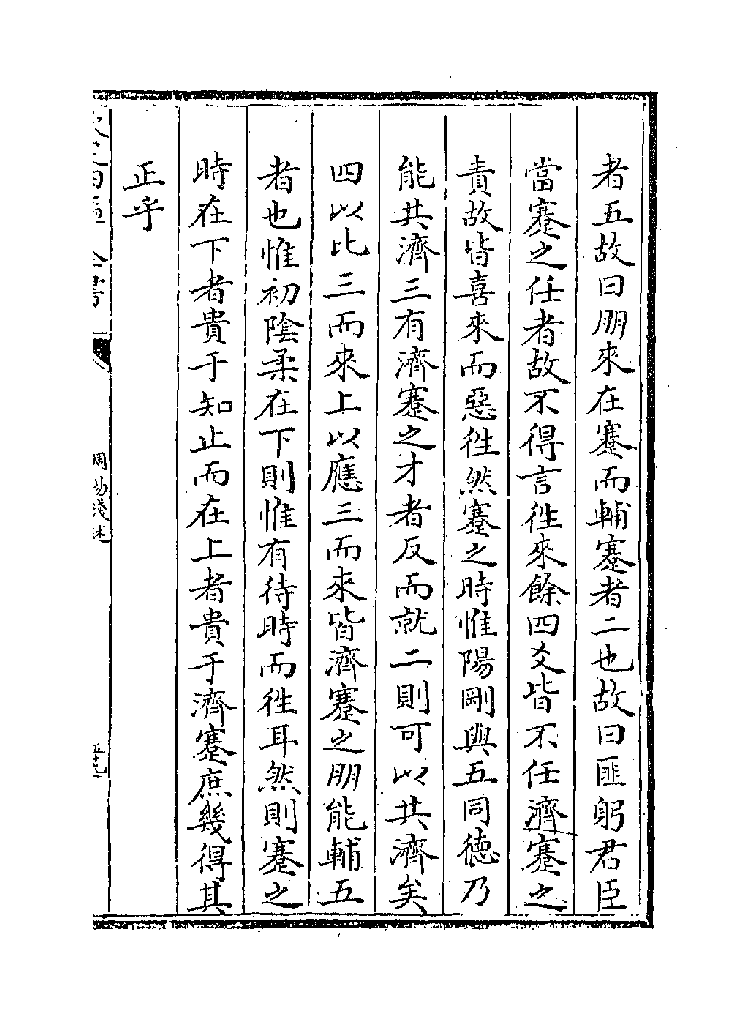 者五故曰朋來在蹇而輔蹇者二也故曰匪躬君臣
當蹇之任者故不得言徃來餘四爻皆不任濟蹇之
責故皆喜來而惡徃然蹇之時惟陽剛與五同德乃
能共濟三有濟蹇之才者反而就二則可以共濟矣
四以比三而來上以應三而來皆濟蹇之朋能輔五
者也惟初陰柔在下則惟有待時而徃耳然則蹇之
時在下者貴于知止而在上者貴于濟蹇庶幾得其
正乎
周易淺述